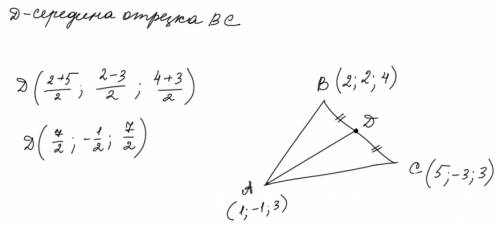 D-середина отрезка BC
D(2+5/2; 2-3/2; 4+3/2)
D(7/2; -1/2; 7/2)
B(2; 2; 4)
D
C(5;-3;3)
A
(1;-1;3)